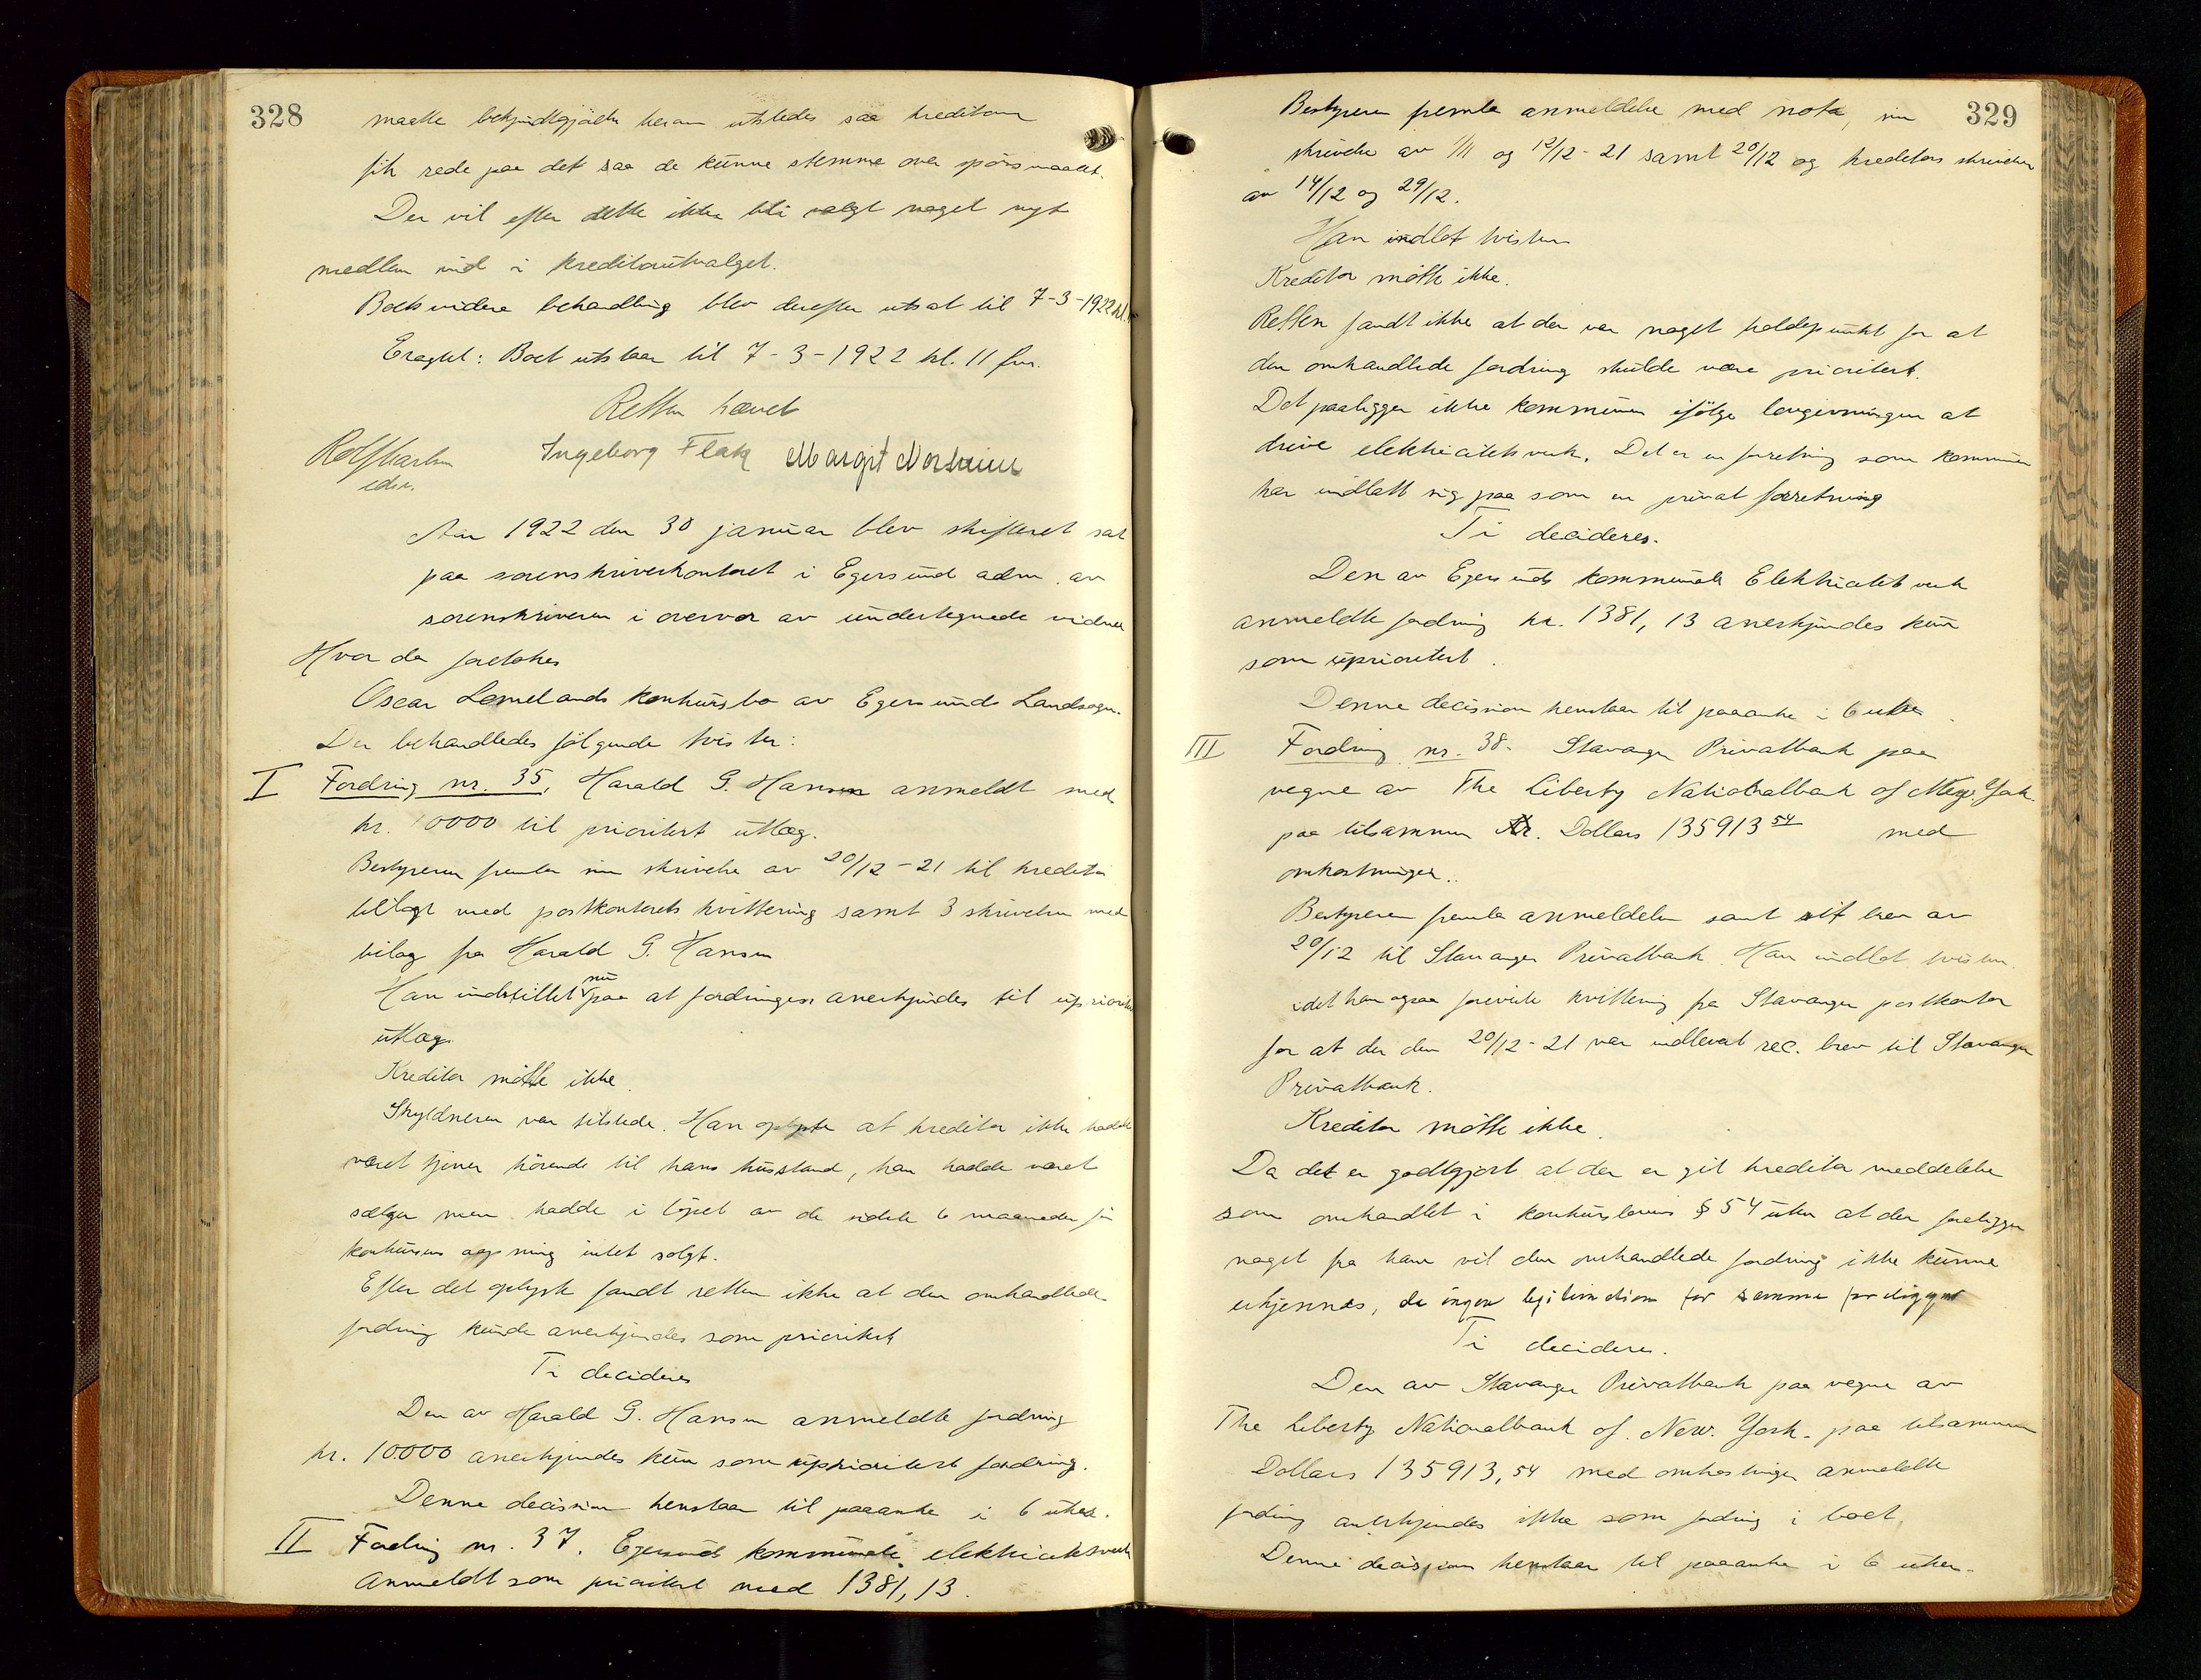 328
maatte bekjendtgjørelse herom utstedes saa kreditorene
fik rede paa det saa de kunne stemme over spørsmaalet.
Der vil efter dette ikke bli valgt noget nyt
medlem ind i kreditorutvalget.
Boets videre behandling blev derefter utsat til 7-3-1922 kl. 11
Eragtet: Boet utstaar til 7-3-1922 kl. 11 fm.
Retten hævet
Ingeborg Flak Margit
cdsr.
Aar 1922 den 30 januar blev skifteret sat
paa sorenskriverkontoret i Egersund adm. av
sorenskriveren i overvær av undertegnede vidner
Hvor da foretokes
Oscar Lomelands konkursbo av Egersunds Landsogn.
Der behandledes følgende tvister:
I Fordring nr. 35, Harald G. Hansen anmeldt med
kr. 10000 til prioritert utlæg.
Bestyreren fremla sin skrivelse av 20/12-21 til kreditor
tillagt med postkontorets kvittering samt 3 skrivelser med
bilag fra Harald G. Hansen
Han indstillet nu paa at fordringen anerkjendes til uprioritert
utlæg.
Kreditor møtte ikke.
Skyldneren var tilstede. Han oplyste at kreditor ikke hadde
været tjener hørende til hans husstand, han hadde været
sælger men hadde i løpet av de sidste 6 maaneder før
konkursens aapning intet solgt.
Efter det oplyste fandt retten ikke at den omhandlede
fordring kunde anerkjendes som prioritert
Ti decideres
Den av Harald G. Hansen anmeldte fordring
kr. 10.000 anerkjendes kun som uprioritert fordring.
Denne decision henstaar til paaanke i 6 uker.
II Fordring nr. 37. Egersunds kommunale elektricitetsverk
anmeldt som prioritert med 1381,13.
329
Bestyreren fremla anmeldelse med nota, sin
skrivelse av 1/11 og 12/12-21 samt 20/12 og kreditors skrivelser
av 14/12 og 29/12.
Han indlot tvisten
Kreditor møtte ikke.
Retten fandt ikke at der var noget holdepunkt for at
den omhandlede fordring skulde være prioritert.
Det paaligger ikke kommunen ifølge lovgivningen at
drive elektricitetsverk. Det er en forretning som kommunen
har indlatt sig paa som en privat forretning
Ti decideres.
Den av Egersunds kommunale Elektricitetsverk
anmeldte fordring kr. 1381,13 anerkjendes kun
som uprioritert.
Denne decision henstaar til paaanke i 6 uker.
III Fordring nr. 38. Stavanger Privatbank paa
vegne av The Liberty Nationalbank of New York
paa tilsammen Dollars 135913 54 med
omkostninger.
Bestyreren fremla anmeldelsen samt sit brev av
20/12 til Stavanger Privatbank. Han indlot tvisten
idet han ogsaa foreviste kvittering fra Stavanger postkontor
for at der den 20/12-21 var indlevert rec. brev til Stavanger
Privatbank.
Kreditor møtte ikke.
Da det er godtgjort at der er git kreditor meddelelse
som omhandlet i konkurslovens § 54 uten at der foreligger
noget fra ham vil den omhandlede fordring ikke kunne
erkjennes, da ingen legitimation for samme foreligger
Ti decideres.
Den av Stavanger Privatbank paa vegne av
The Liberty Nationalbank of New York paa tilsammen
Dollars 135913,54 med omkostninger anmeldte
fordring anerkjendes ikke som fordring i boet.
Denne decision henstaar til paaanke i 6 uker.